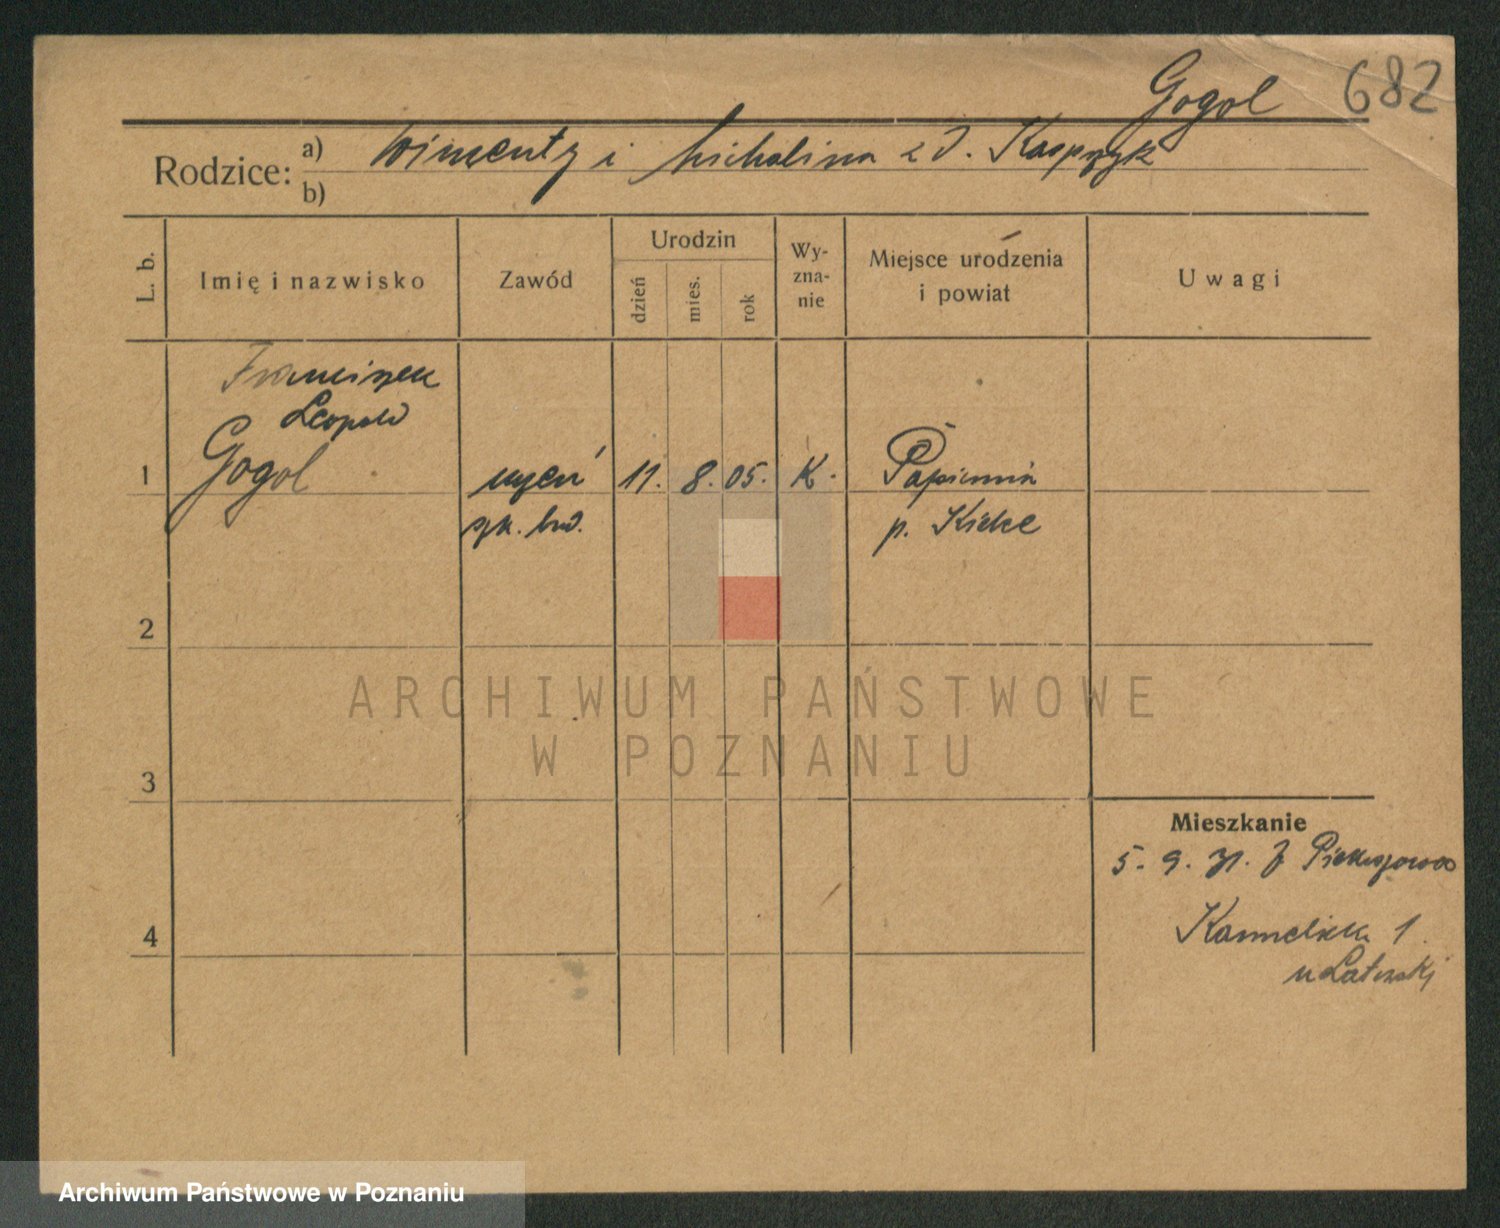 Gogol 682
Rodzice: a) Wincenty i Michalina z d. Kasprzyk
b)
L. b. Imię i nazwisko Zawód Urodzin dzień mies. rok Wy-zna-nie Miejsce urodzenia i powiat Uwagi
Franciszek
Leopold
1 Gogol uczeń 11. 8. 05. K. Papiernia
szk. bud. p. Kielce
2
3
Mieszkanie
5. 9. 31. z
4 Karmelicka 1
u
ARCHIWUM PAŃSTWOWE
W POZNANIU
Archiwum Państwowe w Poznaniu